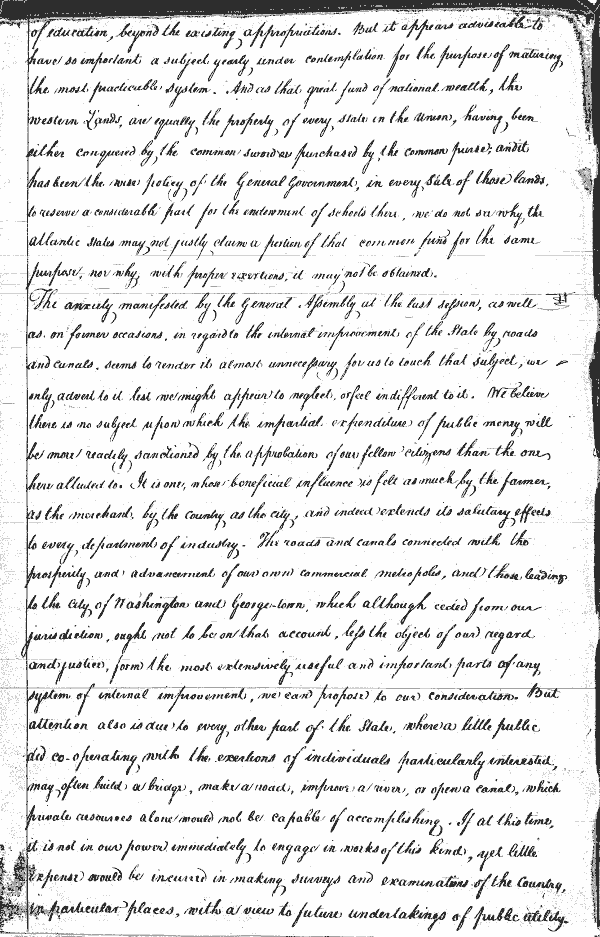 of education, beyond the existing appropriations. But it appears adviseable to
have so important a subject yearly under contemplation for the purpose of maturing
the most practicable system. And as that great fund of national wealth, the
western Lands, are equally the property of every state in the Union, having been
either conquered by the common sword or purchased by the common purse; and it
has been the wise policy of the General Government, in every Sale of those lands,
to reserve a considerable part for the endowment of schools there, we do not see why the
atlantic States may not justly claim a portion of that common fund for the same
purpose, nor why, with proper exertions, it may not be obtained.
The anxiety manifested by the General Assembly at the last session, as well
as on former occasions, in regard to the internal improvement of the State by roads
and canals, seems to render it almost unnecessary for us to touch that subject, we
only advert to it lest we might appear to neglect, or feel indifferent to it. We believe
there is no subject upon which the impartial expenditure of public money will
be more readily sanctioned by the approbation of our fellow citizens than the one
here alluded to. It is one, whose beneficial influence is felt as much by the farmer,
as the merchant, by the Country as the city, and indeed extends its salutary effects
to every department of industry. The roads and canals connected with the
prosperity and advancement of our own commercial metropolis, and those leading
to the City of Washington and George-town, which although ceded from our
jurisdiction, ought not to be on that account, less the object of our regard
and justice, form the most extensively useful and important parts of any
system of internal improvement, we can propose to our consideration. But
attention also is due to every other part of the State, where a little public
aid co-operating with the exertions of individuals particularly interested,
may often build a bridge, make a road, improve a river, or open a canal, which
private resources alone would not be capable of accomplishing. If at this time,
it is not in our power immediately to engage in works of this kind, yet little
expense would be incurred in making surveys and examinations of the Country,
in particular places, with a view to future undertakings of public utility.